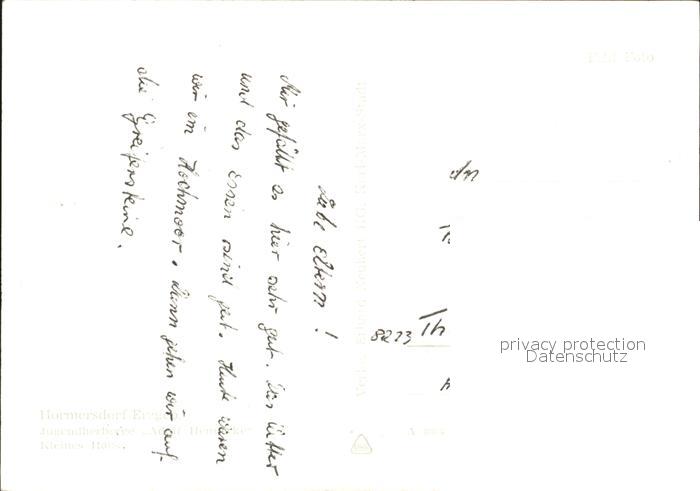 Liebe Eltern!
Mir gefällt es hier sehr gut. Das Wetter
und das Essen sind gut. Heute waren
wir im Hochmoor. Dann gehen wir auf
die Greifensteine.
8223 Th
Bild Foto
Verlag Erhard Neubert KG, Karl-Marx-Stadt
Hormersdorf Erzgeb.
Jugendherberge "Adolf
Kleines Haus
privacy protection
Datenschutz